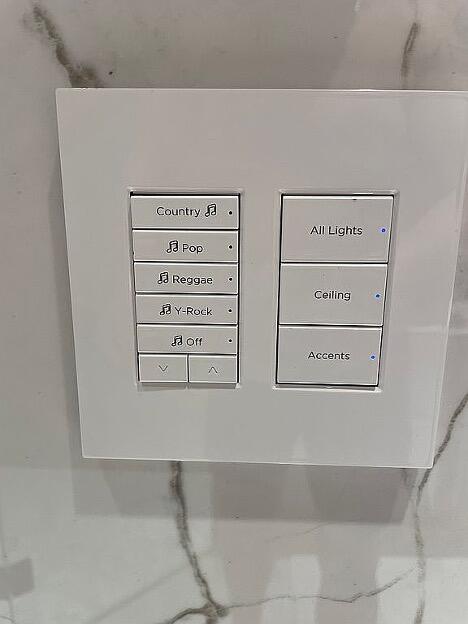 Country
Pop
Reggae
Y-Rock
Off
All Lights
Ceiling
Accents